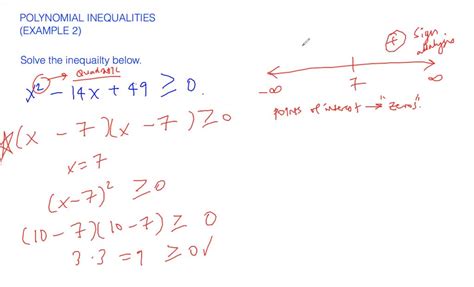 POLYNOMIAL INEQUALITIES
(EXAMPLE 2)
Solve the inequailty below.
Quadratic
x² - 14x + 49 ≥ 0.
(x - 7)(x - 7) ≥ 0
x = 7
(x - 7)² ≥ 0
(10 - 7)(10 - 7) ≥ 0
3 · 3 = 9 ≥ 0 ✓
+ Sign
analysis
-∞ 7 ∞
Points of interest → "zeros".